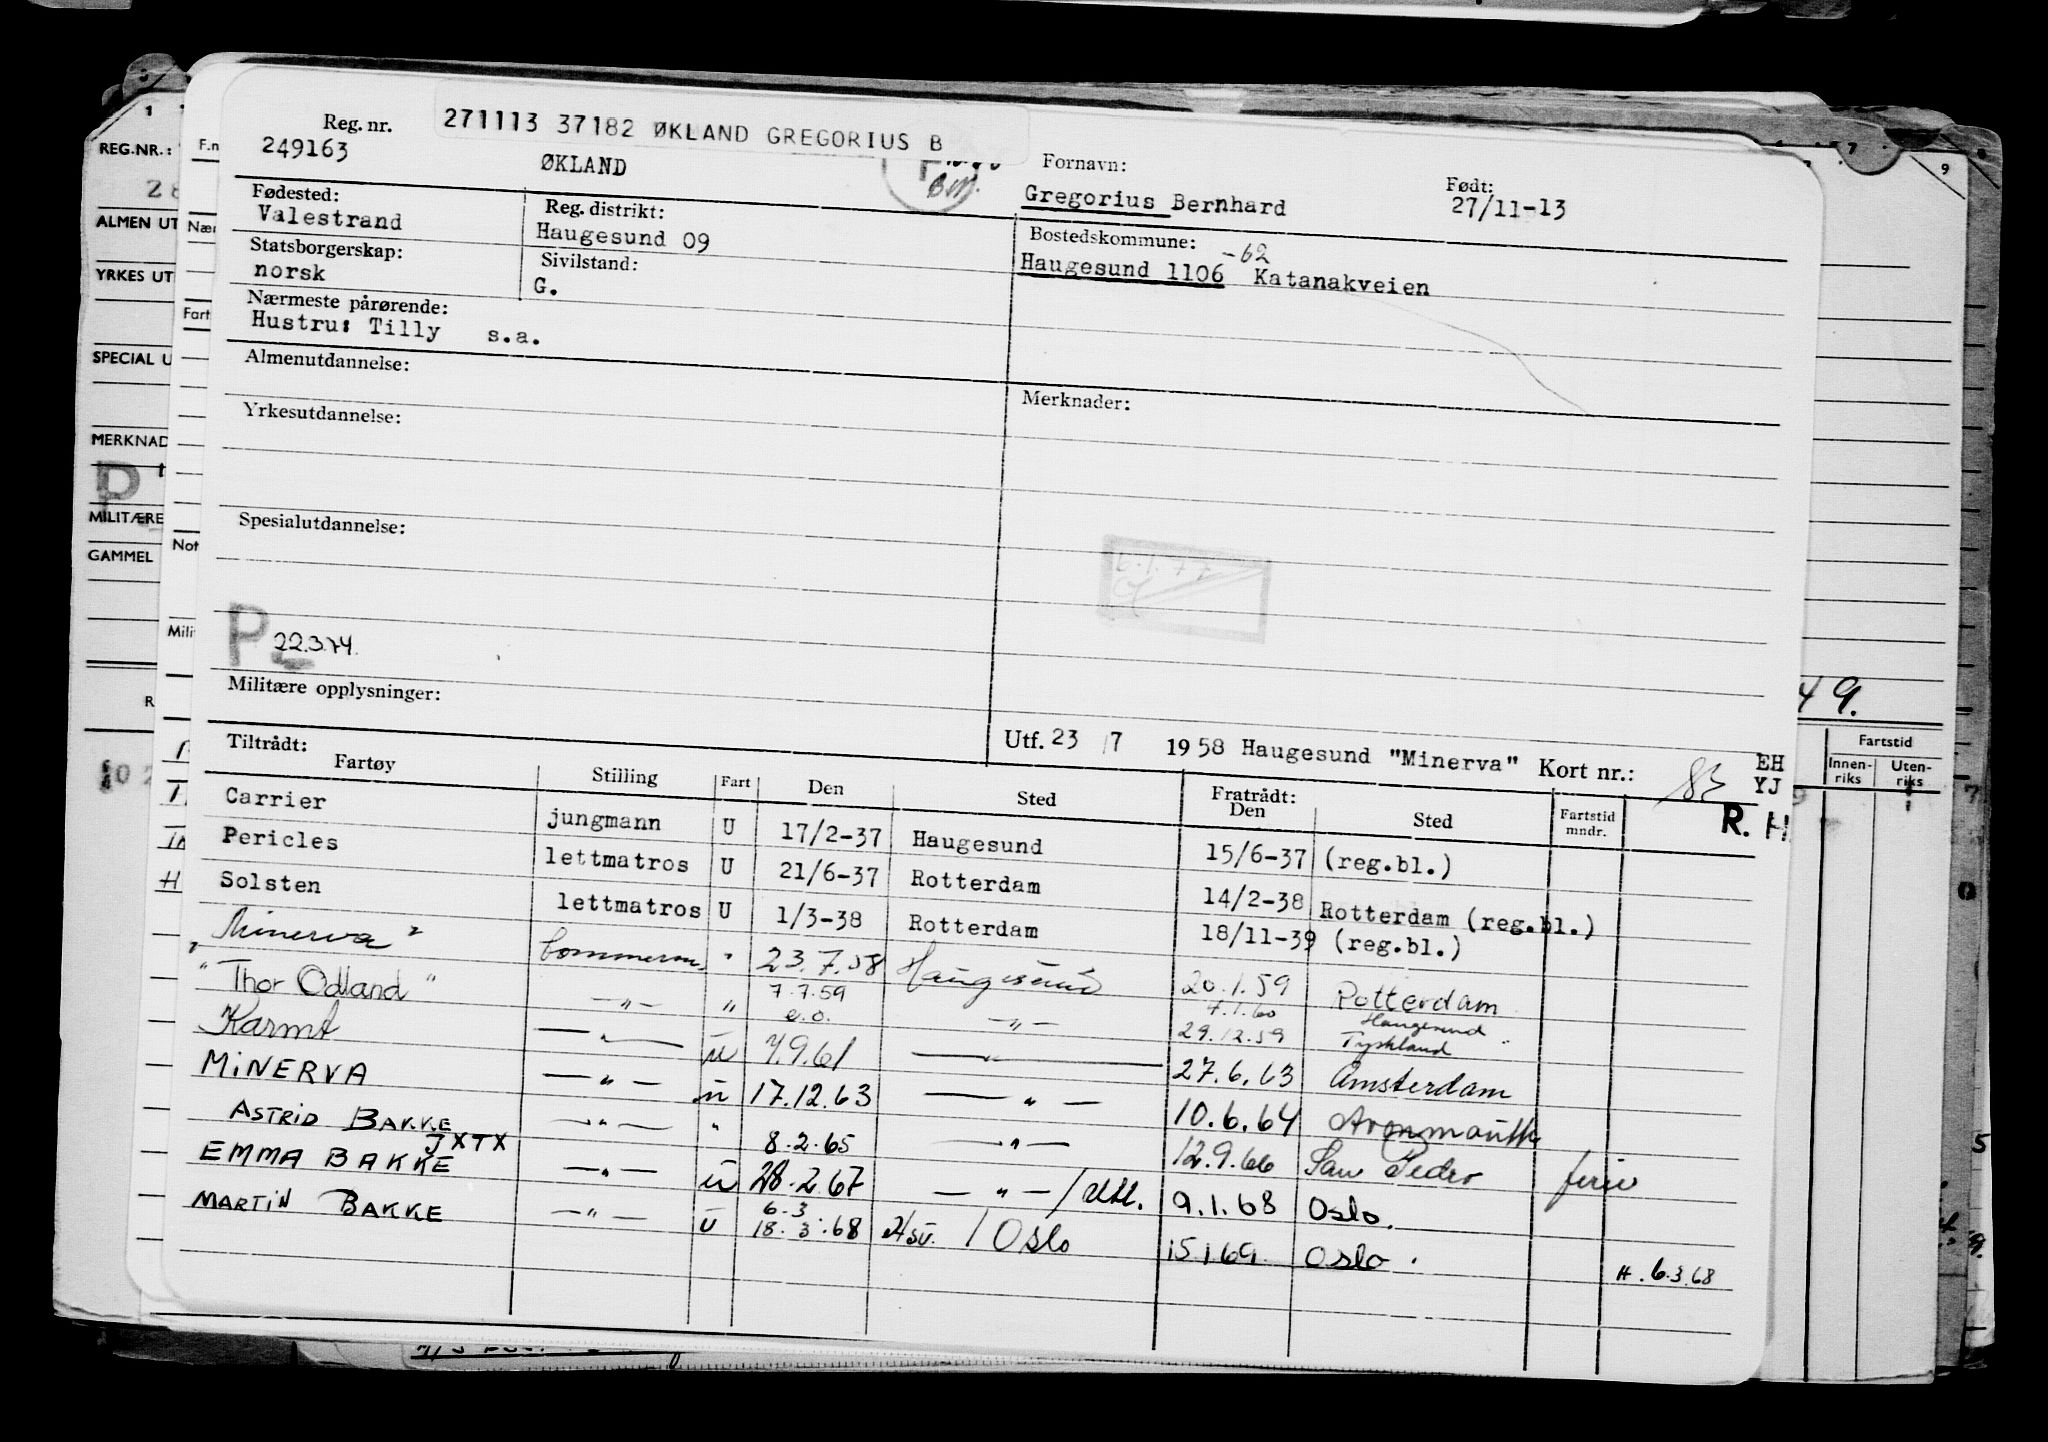 271113 37182 ØKLAND GREGORIUS B
Reg. nr.
249163 ØKLAND
Fornavn:
Gregorius Bernhard
Født:
27/11-13
Fødested:
Valestrand
Reg. distrikt:
Haugesund 09
Bostedskommune:
-62
Haugesund 1106 Katanakveien
Statsborgerskap:
norsk
Sivilstand:
G.
Nærmeste pårørende:
Hustru: Tilly s.a.
Almenutdannelse:
Merknader:
Yrkesutdannelse:
Spesialutdannelse:
6.1.77
P 22.3.74.
Militære opplysninger:
Utf. 23/7 1958 Haugesund "Minerva" Kort nr.: 83 EH
YJ
R. H
Tiltrådt: Fratrådt:
Fartøy Stilling Fart Den Sted Den Sted Fartstid mndr.
Carrier jungmann U 17/2-37 Haugesund 15/6-37 (reg.bl.)
Pericles lettmatros U 21/6-37 Rotterdam 14/2-38 Rotterdam (reg.bl.)
Solsten lettmatros U 1/3-38 Rotterdam 18/11-39 (reg.bl.)
"Minerva" " 23.7.58 Haugesund 20.1.59 Rotterdam
"Thor Odland" —"— " 7.7.59 e.o. —"— 7.1.60 Haugesund
29.12.59 Tyskland
Karmt —"— ū 7.9.61 —"— 27.6.63 Amsterdam
MINERVA —"— ū 17.12.63 —"— 10.6.64 Avonmouth
ASTRID BAKKE —"— " 8.2.65 —"— 12.9.66 San Pedro ferie
JXTX
EMMA BAKKE —"— ū 28.2.67 —"—/utl. 9.1.68 Oslo.
MARTIN BAKKE —"— ū 6.3
18.3.68 Hsv. / Oslo 15 1 69 Oslo.
H. 6.3.68
REG.NR.:
ALMEN UT
YRKES UT
SPECIAL U
MERKNAD
MILITÆRE
GAMMEL
F.n
Nær
Fart
Not
Mili
49.
Fartstid
Innen-
riks
Uten-
riks